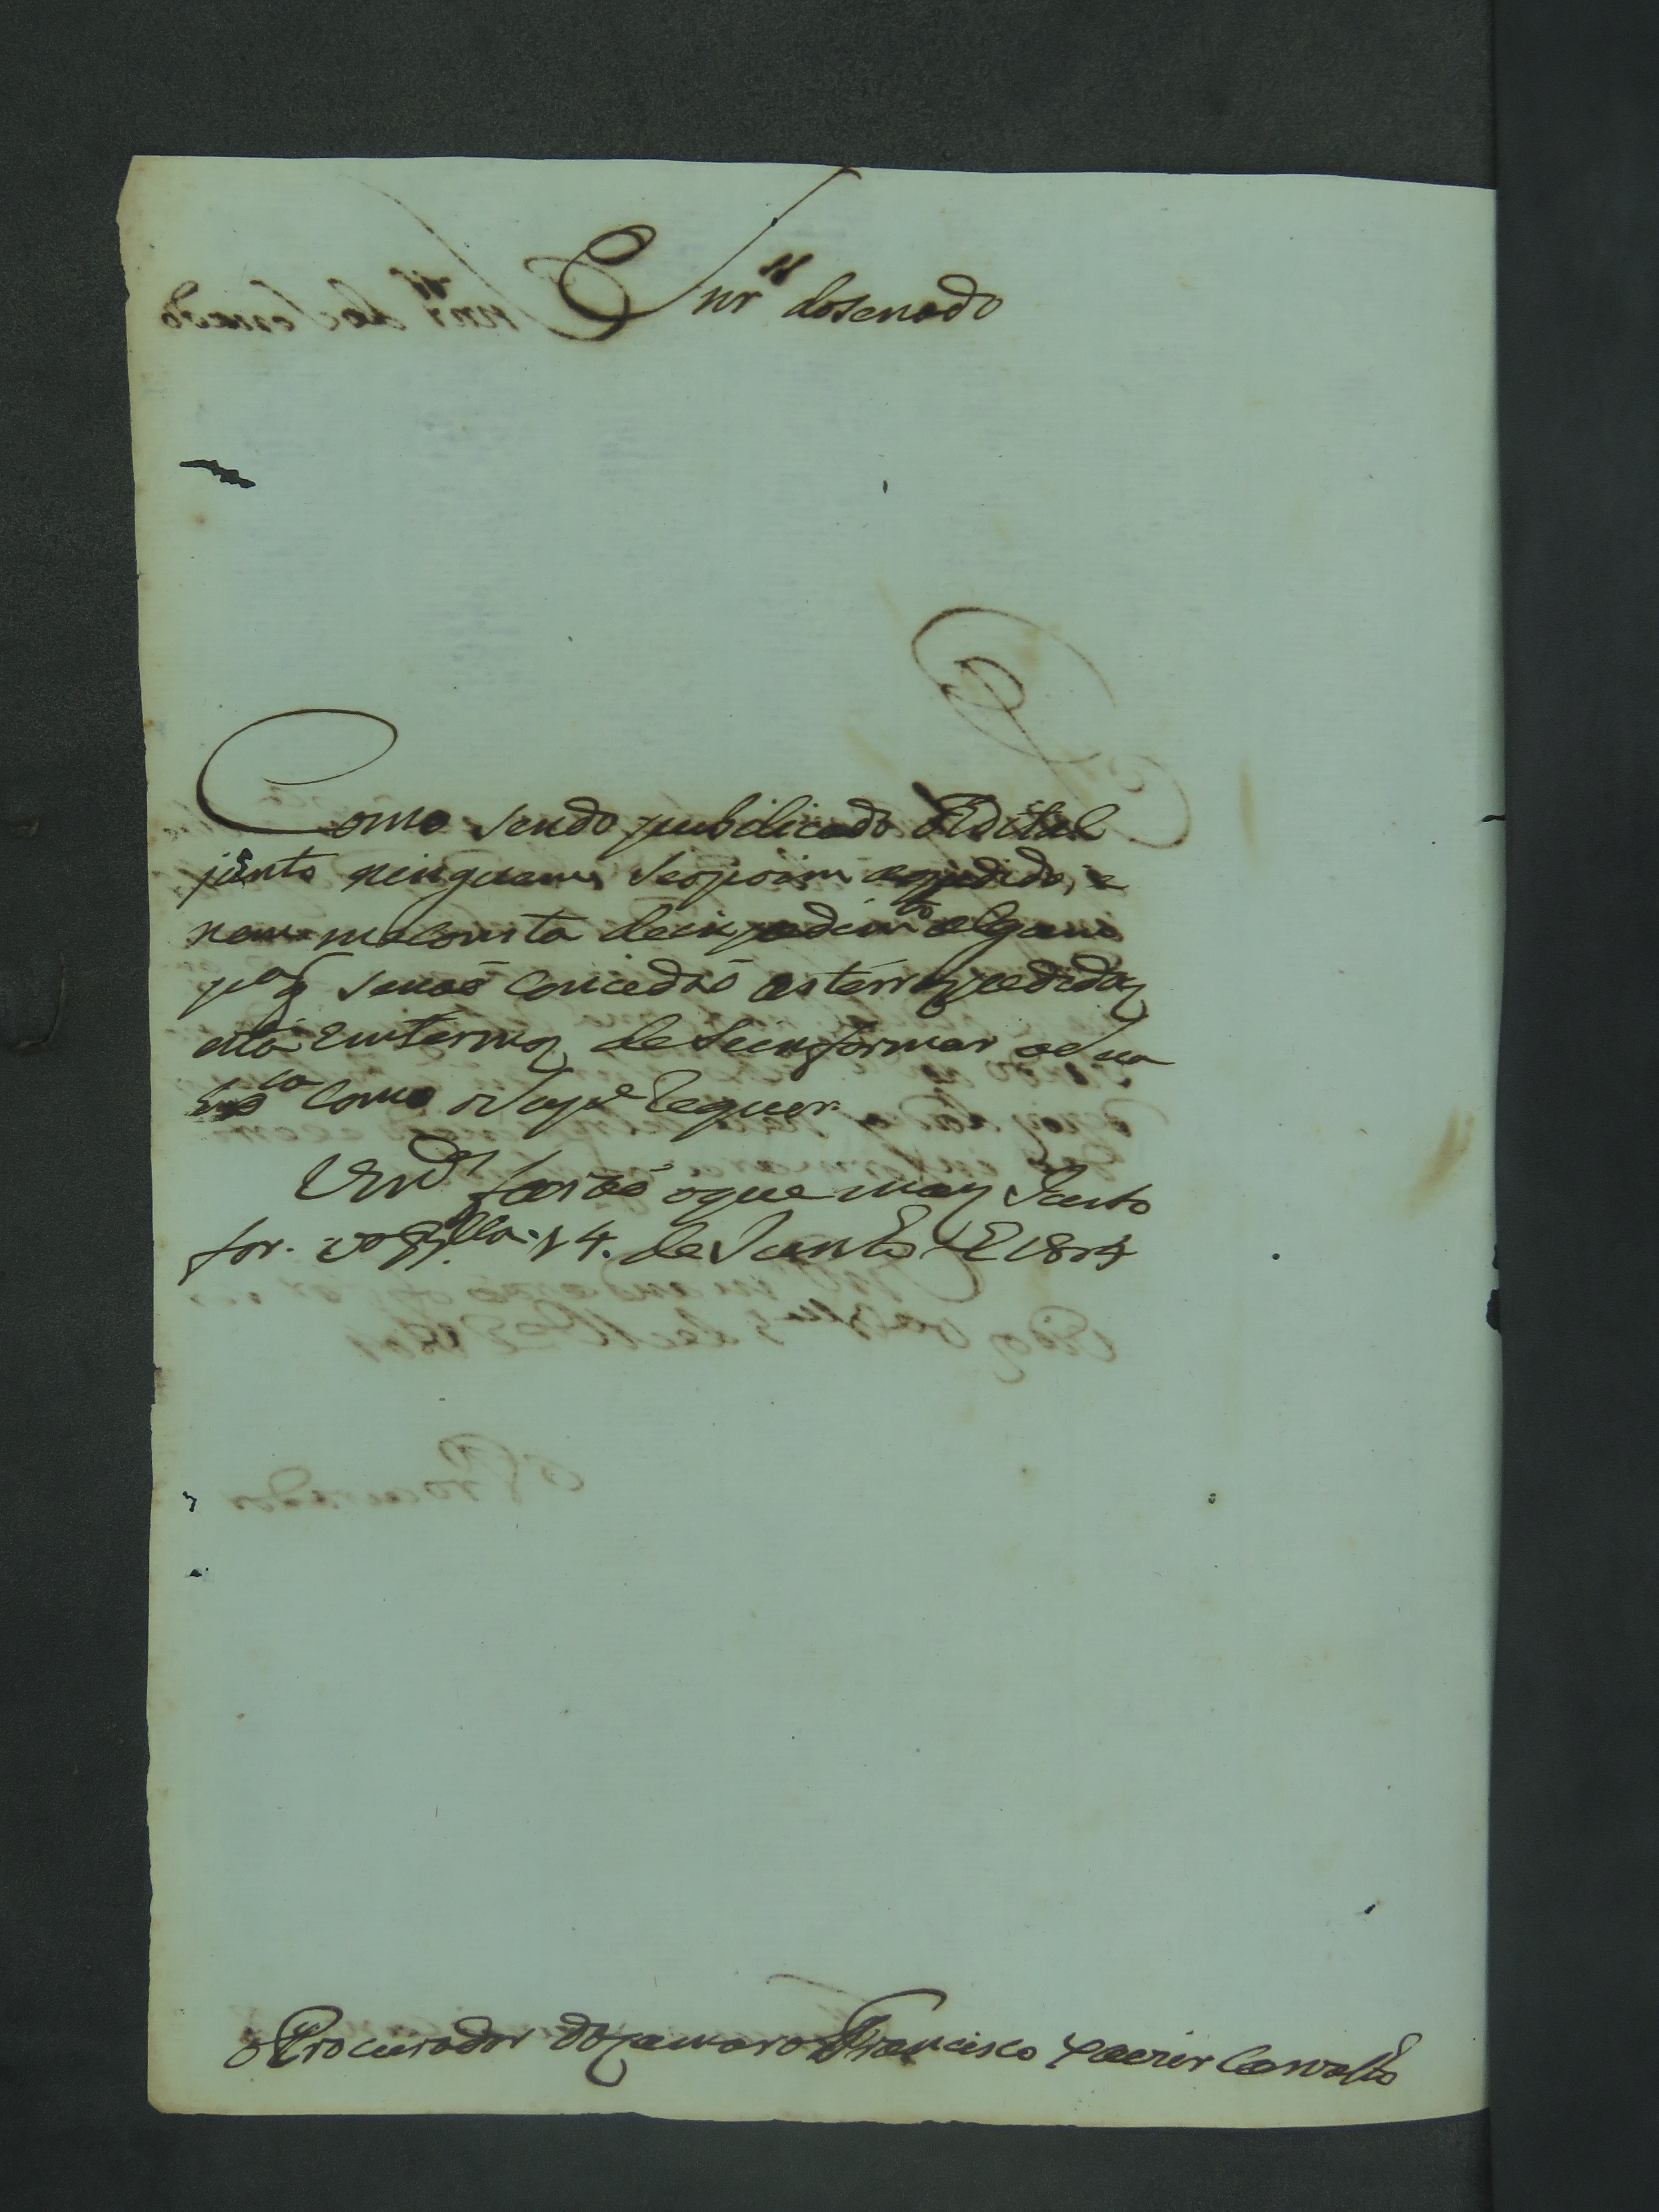 Snrs. do senado
Como sendo publicado o Edital
junto ninguem se opoim aopidido, e
nem meConsta deinpedimto algum
pa q senaõ Concedaõ asterras pedidas
está Emtermos de Seinformar a Sua
como o Supe Requer.
Vmces faraõ oque mais Justo
for. 14. de Junho de 1814
o Procurador da camara Francisco Xavier Carvalho